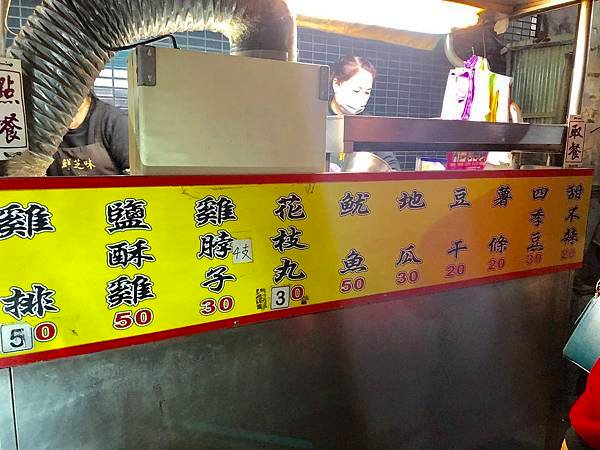 點餐
鮮芝味
取餐
雞排
50
鹽酥雞
50
雞脖子
4支
30
花枝丸
30
魷魚
50
地瓜
30
豆干
20
薯條
20
四季豆
30
甜不辣
20